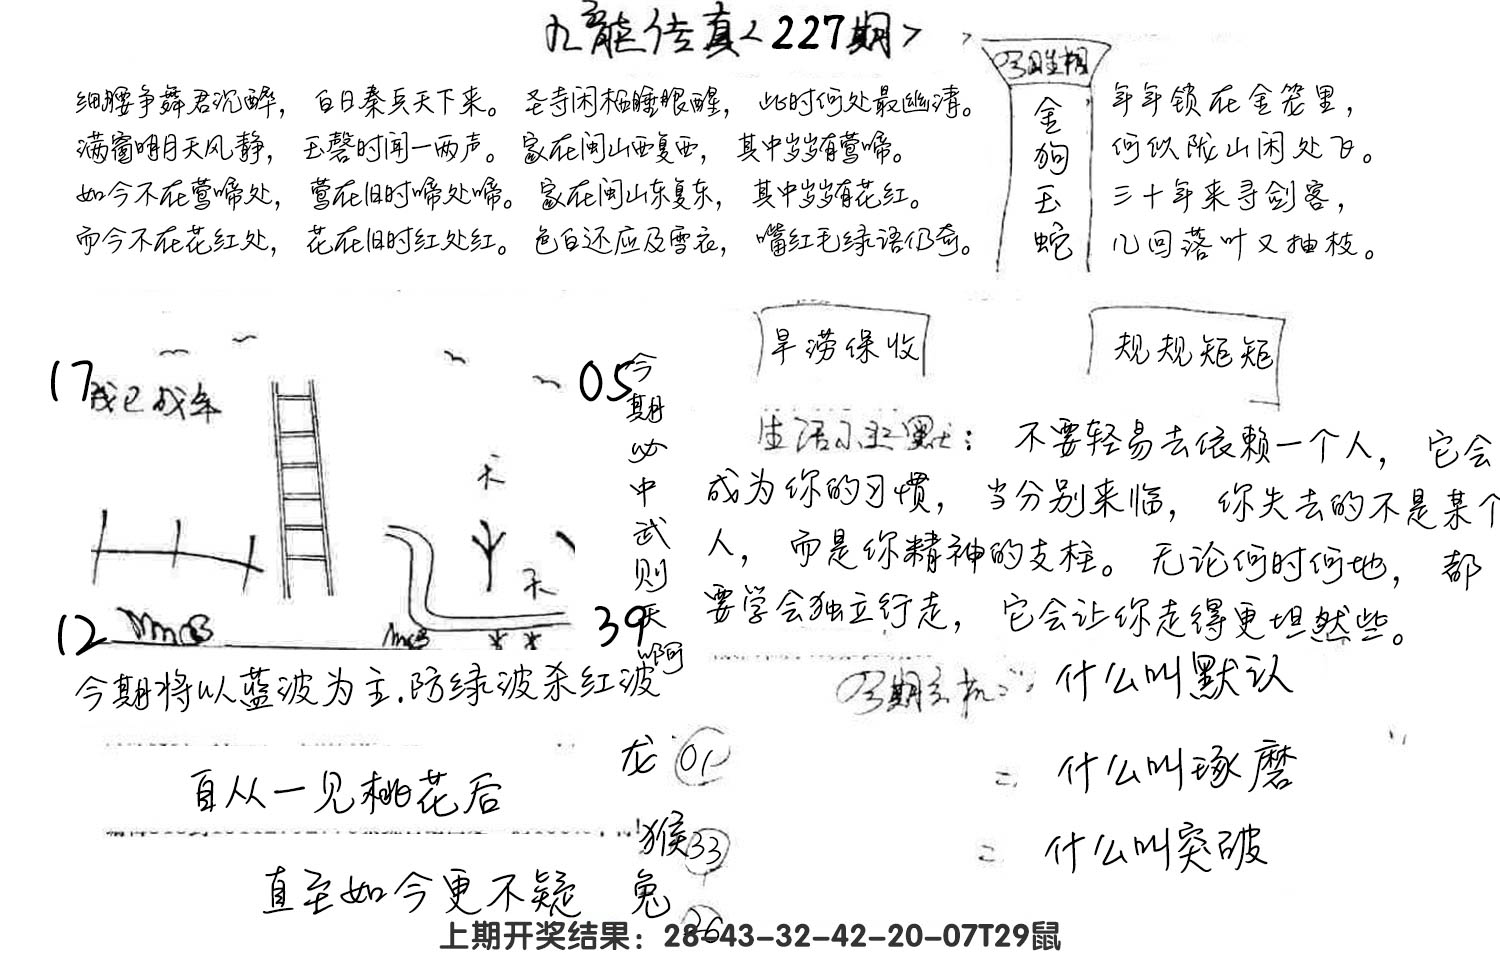 九龍传真<227期>
今日生相
细腰争舞君沉醉，白日秦兵天下来。圣寺闲栖睡眼醒，此时何处最幽清。
满窗明月天风静，玉磬时闻一两声。家在闽山西复西，其中岁岁有莺啼。
如今不在莺啼处，莺在旧时啼处啼。家在闽山东复东，其中岁岁有花红。
而今不在花红处，花在旧时红处红。色白还应及雪衣，嘴红毛绿语仍奇。
金狗玉蛇
年年锁在金笼里，
何似陇山闲处飞。
三十年来寻剑客，
几回落叶又抽枝。
旱涝保收
规规矩矩
17
05
12
39
今期必中武则天啊
今期将以蓝波为主.防绿波杀红波
不要轻易去依赖一个人，它会
成为你的习惯，当分别来临，你失去的不是某个
人，而是你精神的支柱。无论何时何地，都
要学会独立行走，它会让你走得更坦然些。
什么叫默认
什么叫琢磨
什么叫突破
自从一见桃花后
直至如今更不疑
龙 01
猴 33
兔 26
上期开奖结果：28-43-32-42-20-07T29鼠